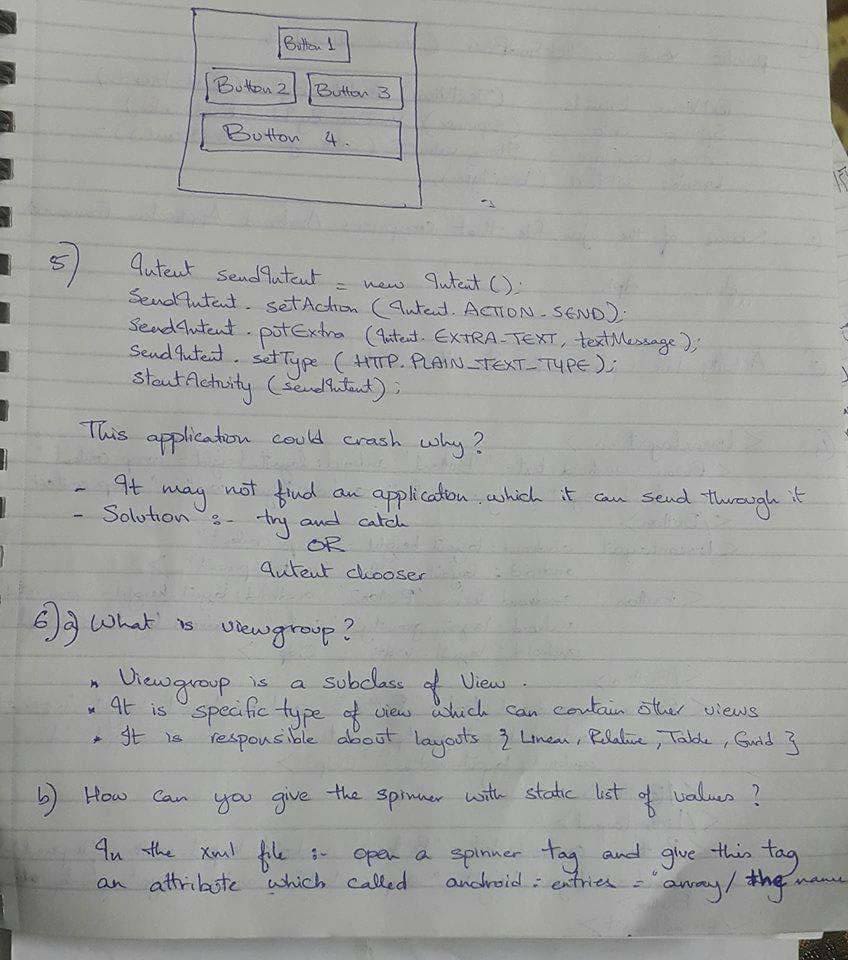 Button 1
Button 2 Button 3
Button 4.
5) Intent sendIntent = new Intent();
SendIntent. setAction (Intent. ACTION_SEND);
SendIntent. putExtra (Intent. EXTRA_TEXT, textMessage);
SendIntent. setType (HTTP.PLAIN_TEXT_TYPE);
StartActivity (sendIntent);
This application could crash why?
- It may not find an application which it can send through it
- Solution :- try and catch
OR
Intent chooser
6) a) What is viewgroup?
* Viewgroup is a subclass of View.
* It is specific type of view which can contain other views
* It is responsible about layouts { Linear, Relative, Table, Grid }
b) How can you give the spinner with static list of values?
In the xml file :- open a spinner tag and give this tag
an attribute which called android: entries = "array/ the name